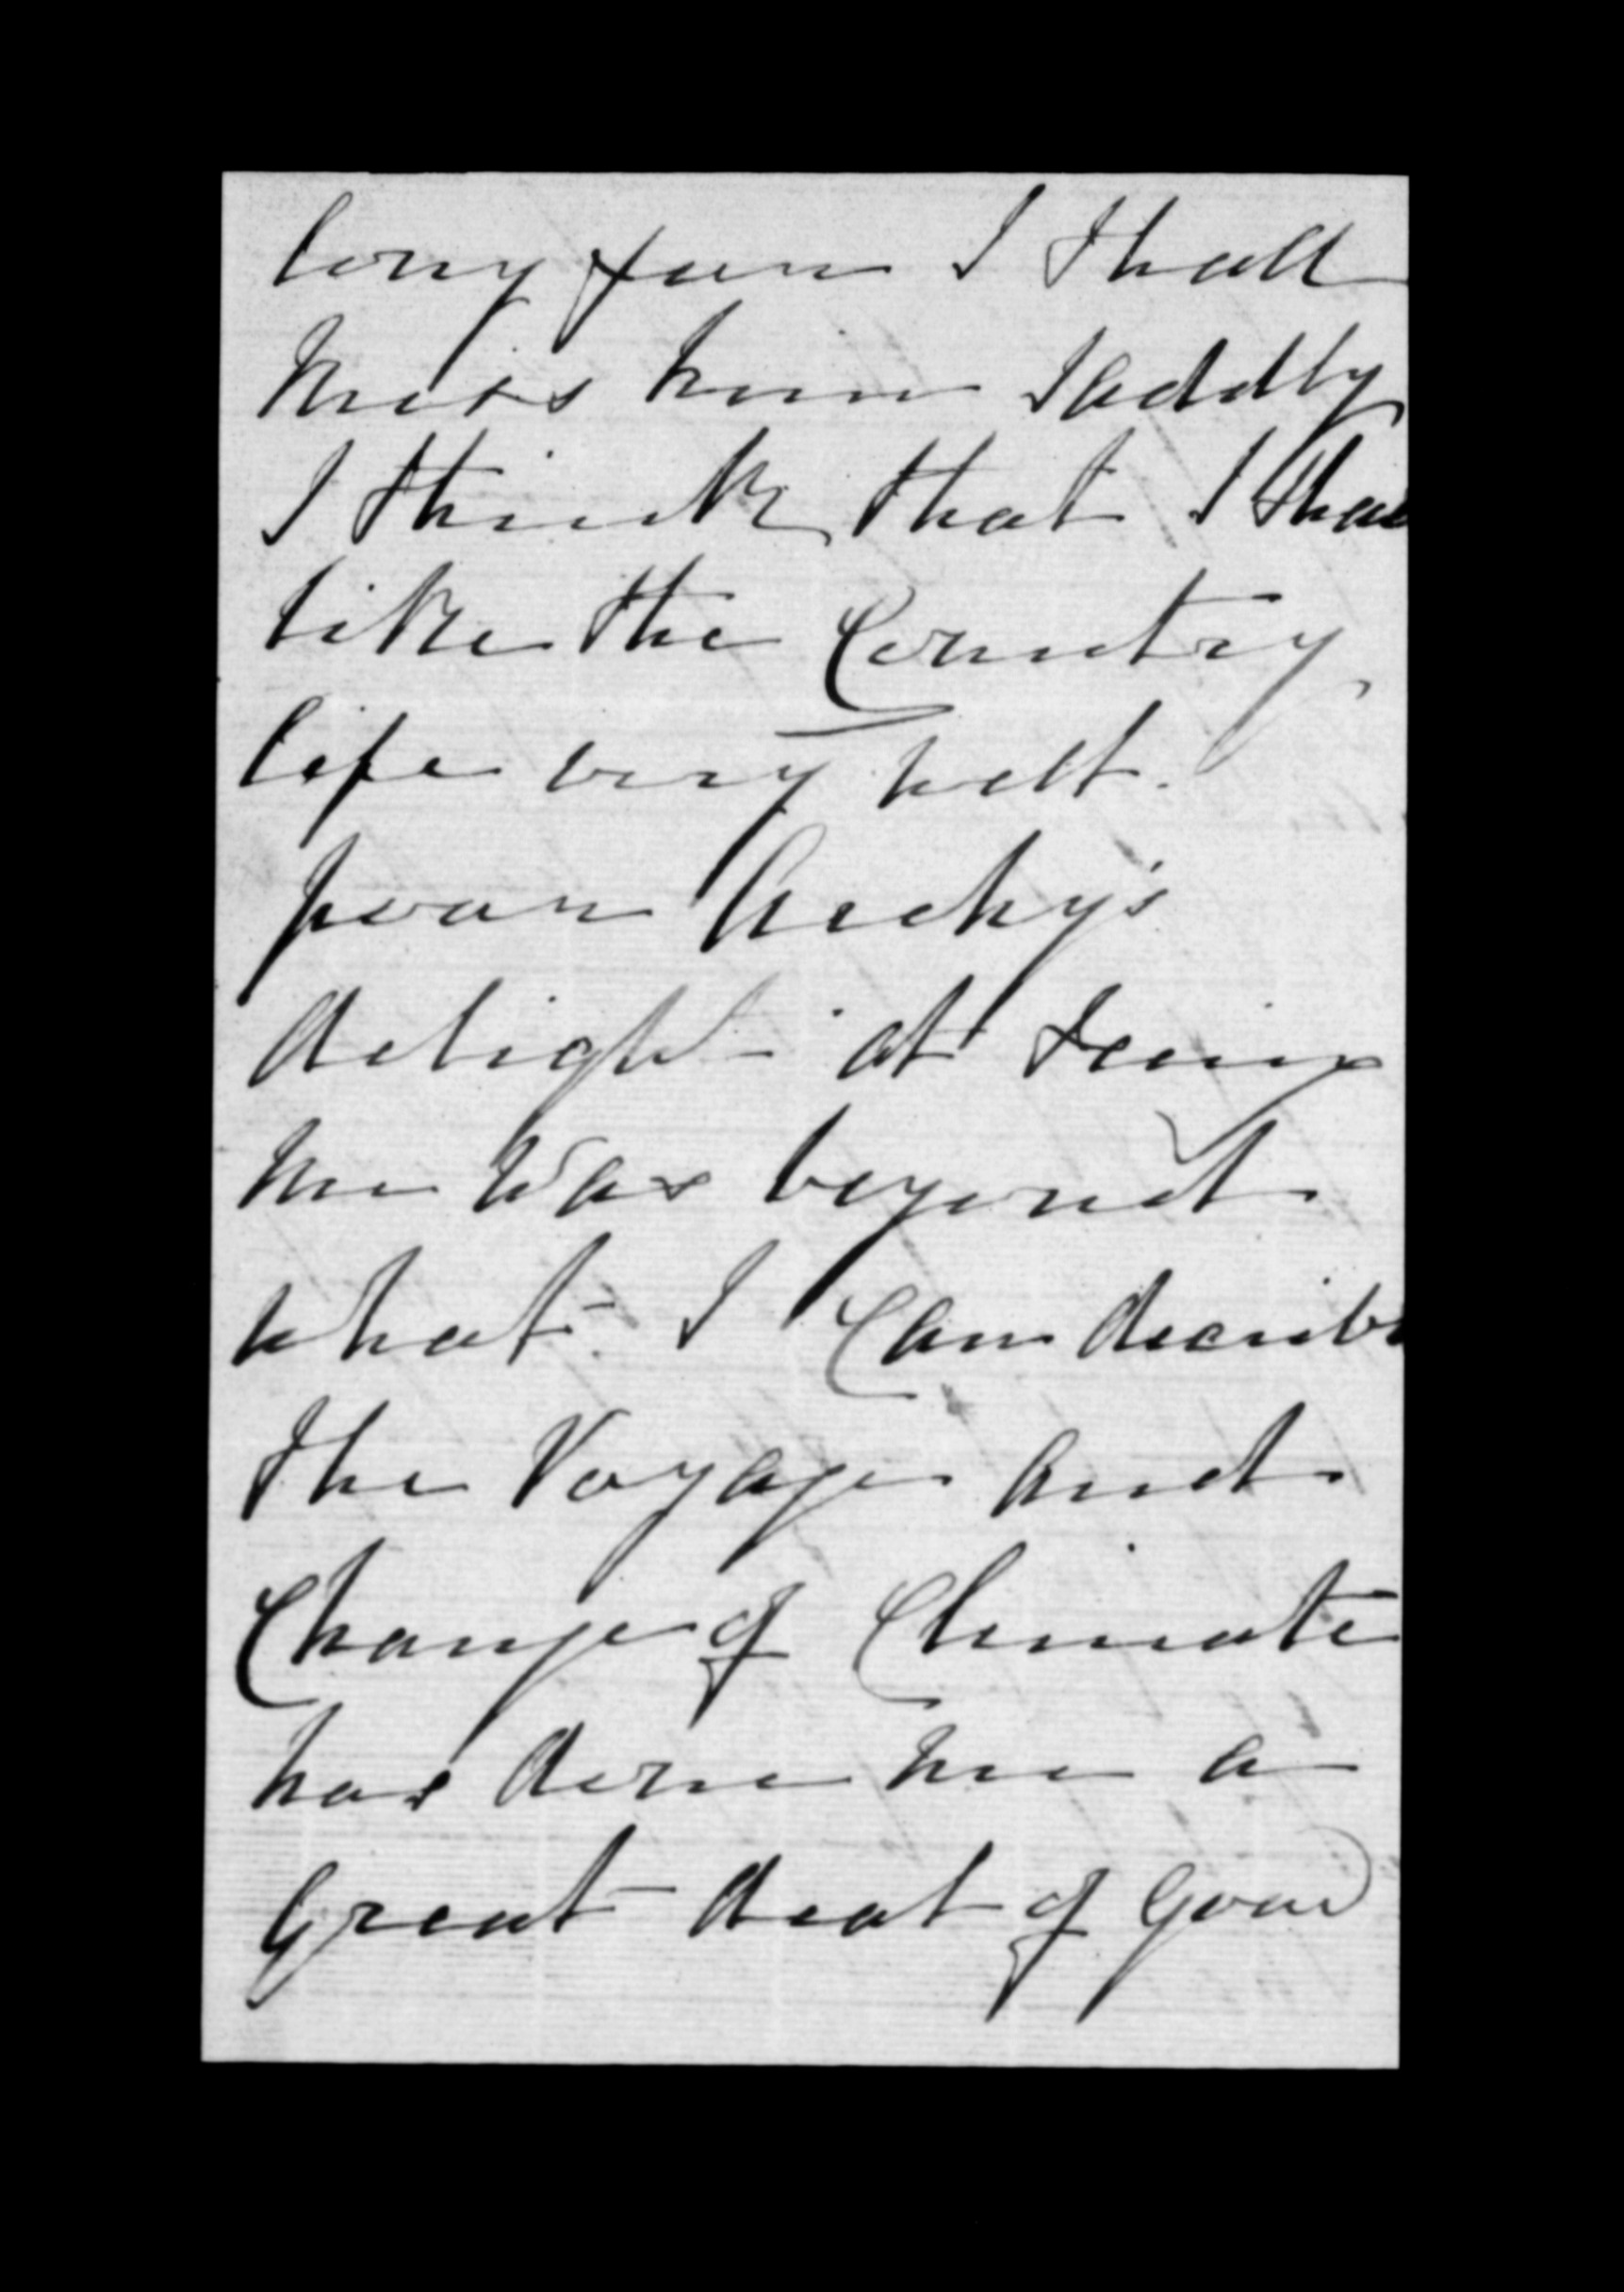 long for I shall
miss him sadly
I think that I shall
like the Country
life very well.
poor Archy's
delight at seeing
me was beyond
what I can decribe
the Voyage and
Change of Climate
has done me a
great deal of good